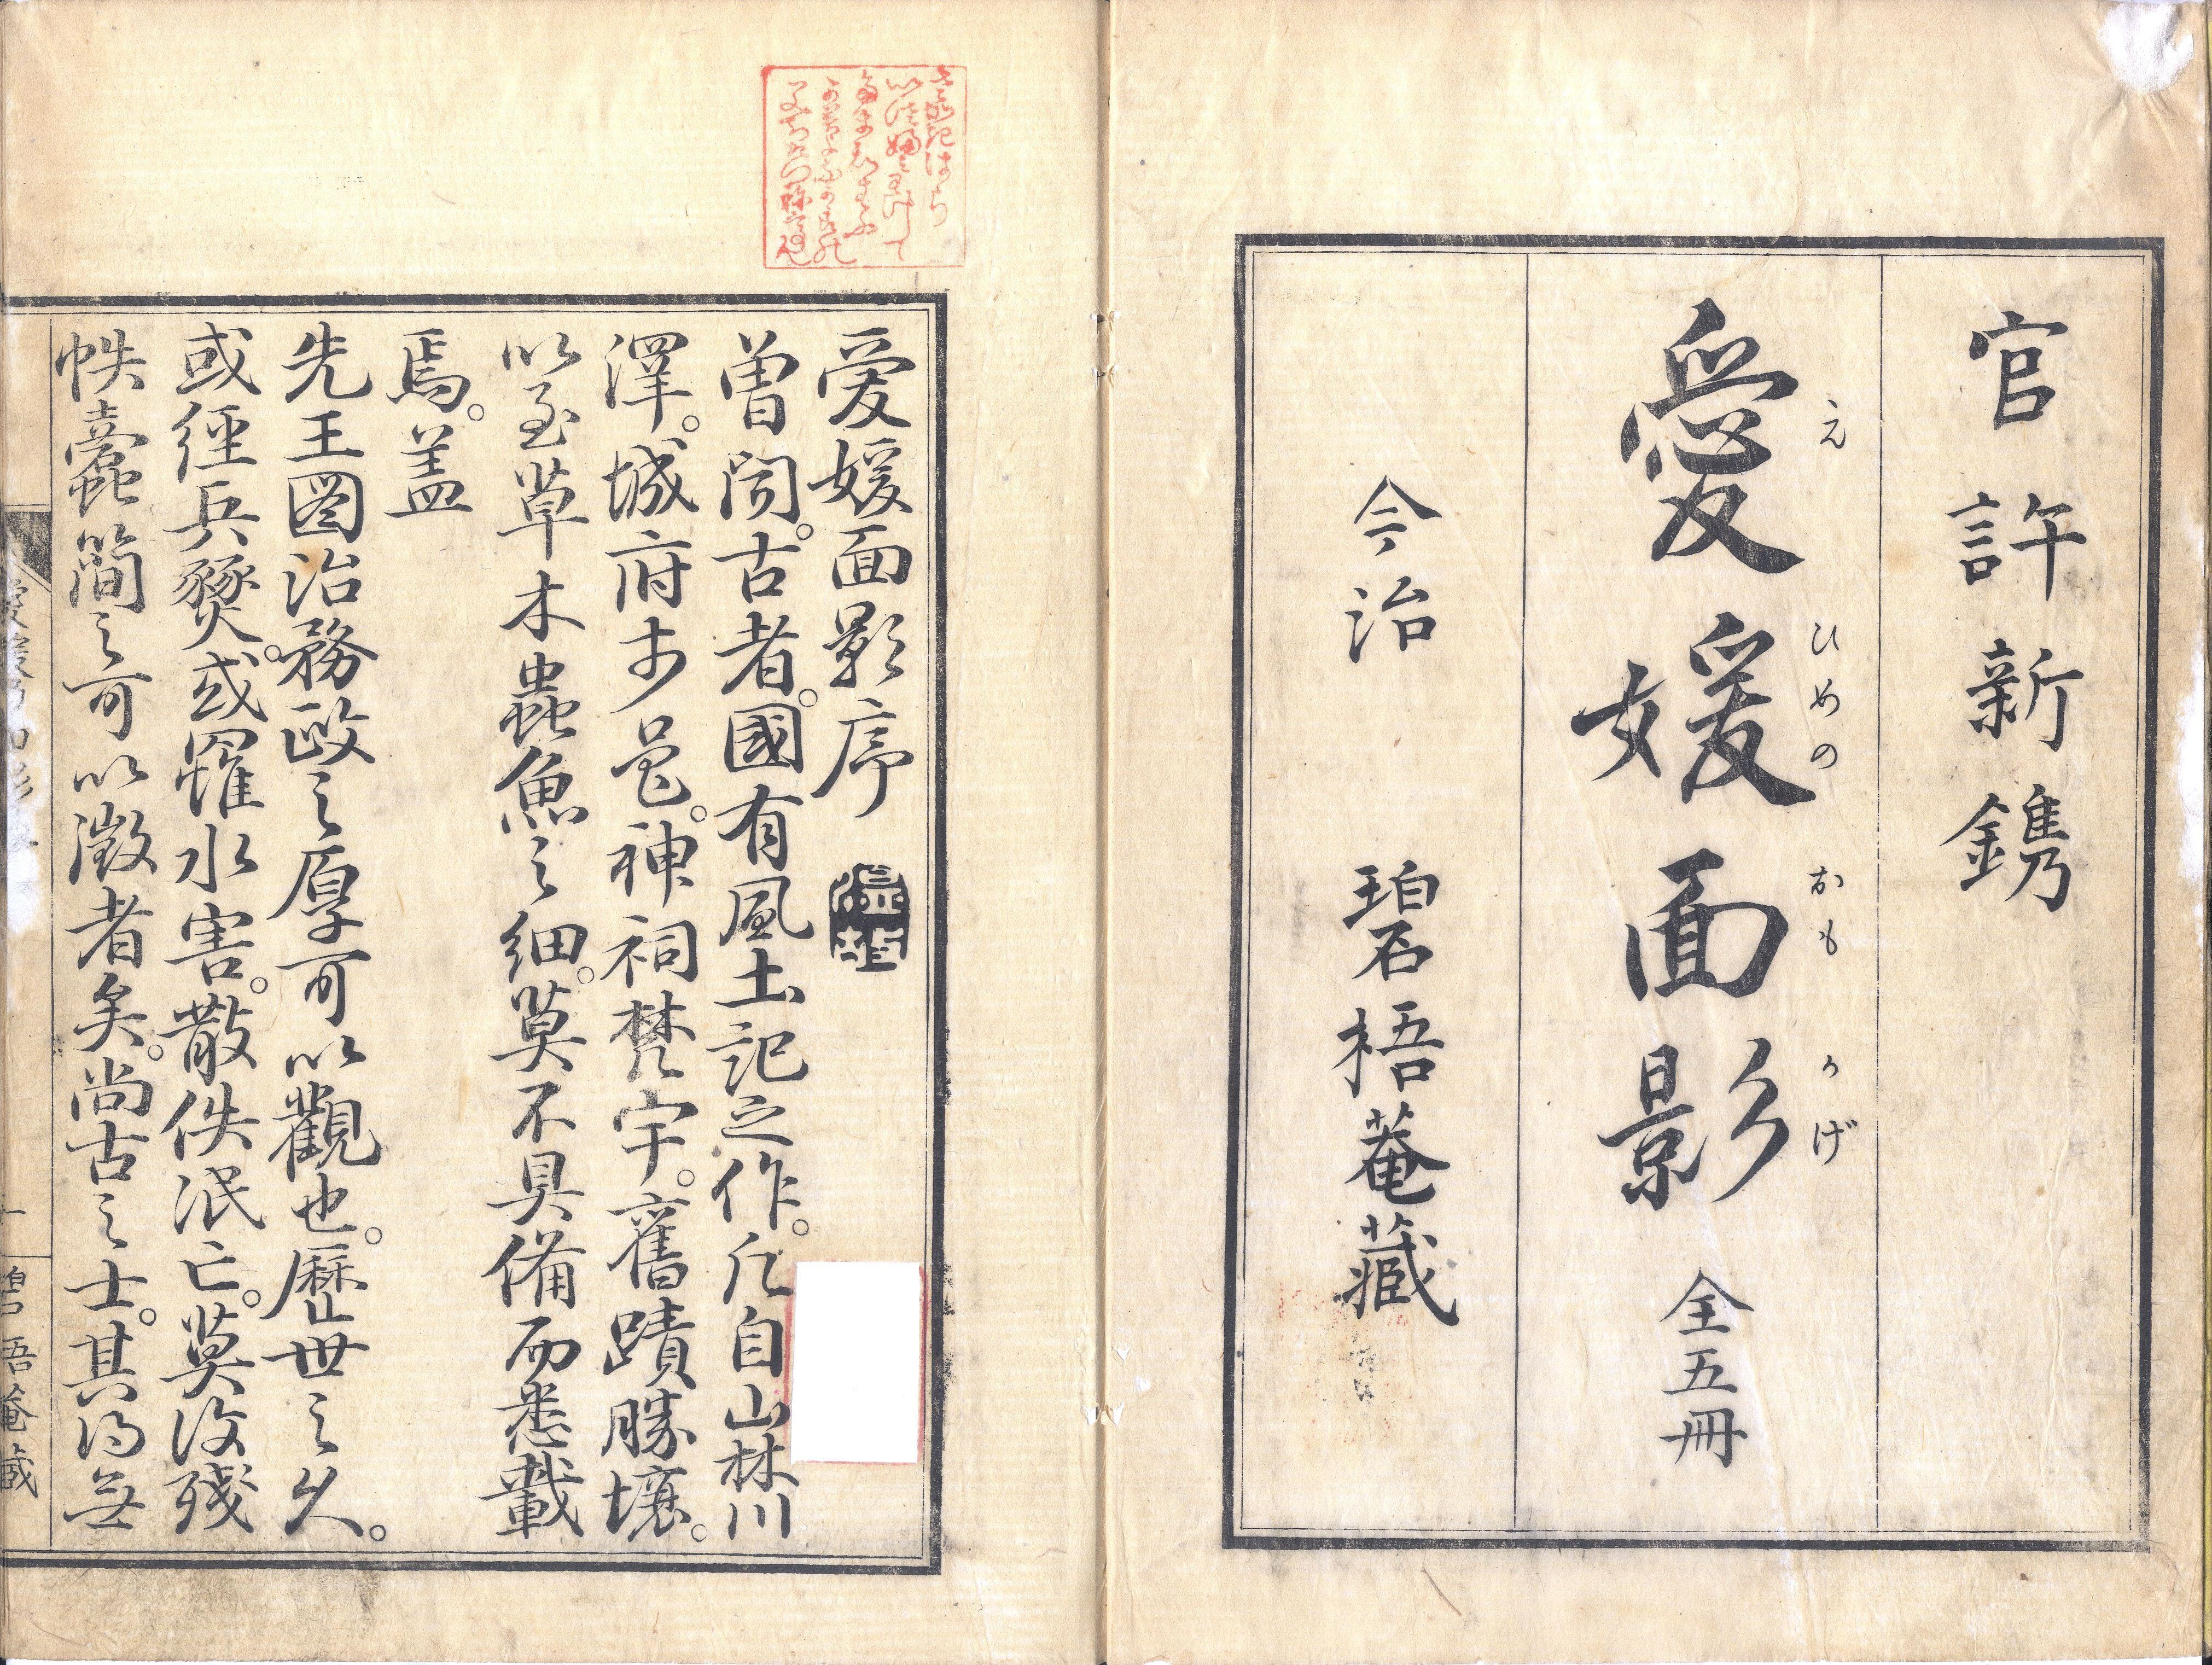 官許新鐫
愛媛面影 全五冊
えひめのおもかげ
今治 碧梧菴藏
愛媛面影序
曽聞。古者。國有風土記之作。凡自山林川
澤。城府市邑。神祠梵宇。舊蹟勝壤。
以至草木蟲魚之細。莫不具備而悉載
焉。盖
先王図治務政之厚可以觀也。歴世之久。
或經兵燹。或罹水害。散佚泯亡。莫復残
帙蠹簡之可以徴者矣。尚古之士。其得無
碧梧菴藏